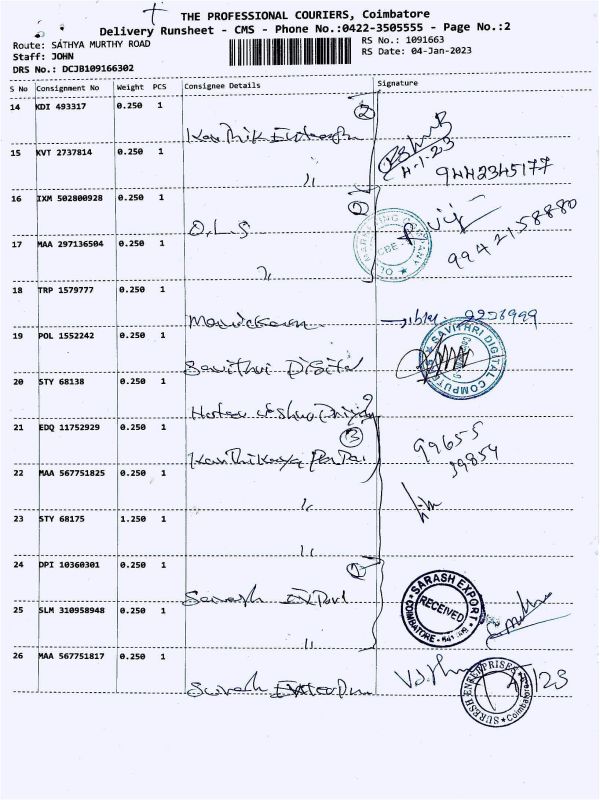 THE PROFESSIONAL COURIERS, Coimbatore
Delivery Runsheet - CMS - Phone No.:0422-3505555 - Page No.:2
Route: SATHYA MURTHY ROAD
RS No.: 1091663
Staff: JOHN
RS Date: 04-Jan-2023
DRS No.: DCJB109166302
S No Consignment No Weight PCS Consignee Details Signature
14 KDI 493317 0.250 1 2
15 KVT 2737814 0.250 1 4-1-23
9442345177
16 IXM 502800928 0.250 1 2
O.L.S
17 MAA 297136504 0.250 1
9942158880
18 TRP 1579777 0.250 1
Manickam
19 POL 1552242 0.250 1 SAVITHRI DIGITAL
Savithri Digital
20 STY 68138 0.250 1
21 EDQ 11752929 0.250 1 3
99655
39854
22 MAA 567751825 0.250 1
23 STY 68175 1.250 1
24 DPI 10360301 0.250 1 2
Sarash Export
SARASH EXPORT
RECEIVED
COIMBATORE
25 SLM 310958948 0.250 1
26 MAA 567751817 0.250 1
Suresh
SURESH ENTERPRISES
Coimbatore